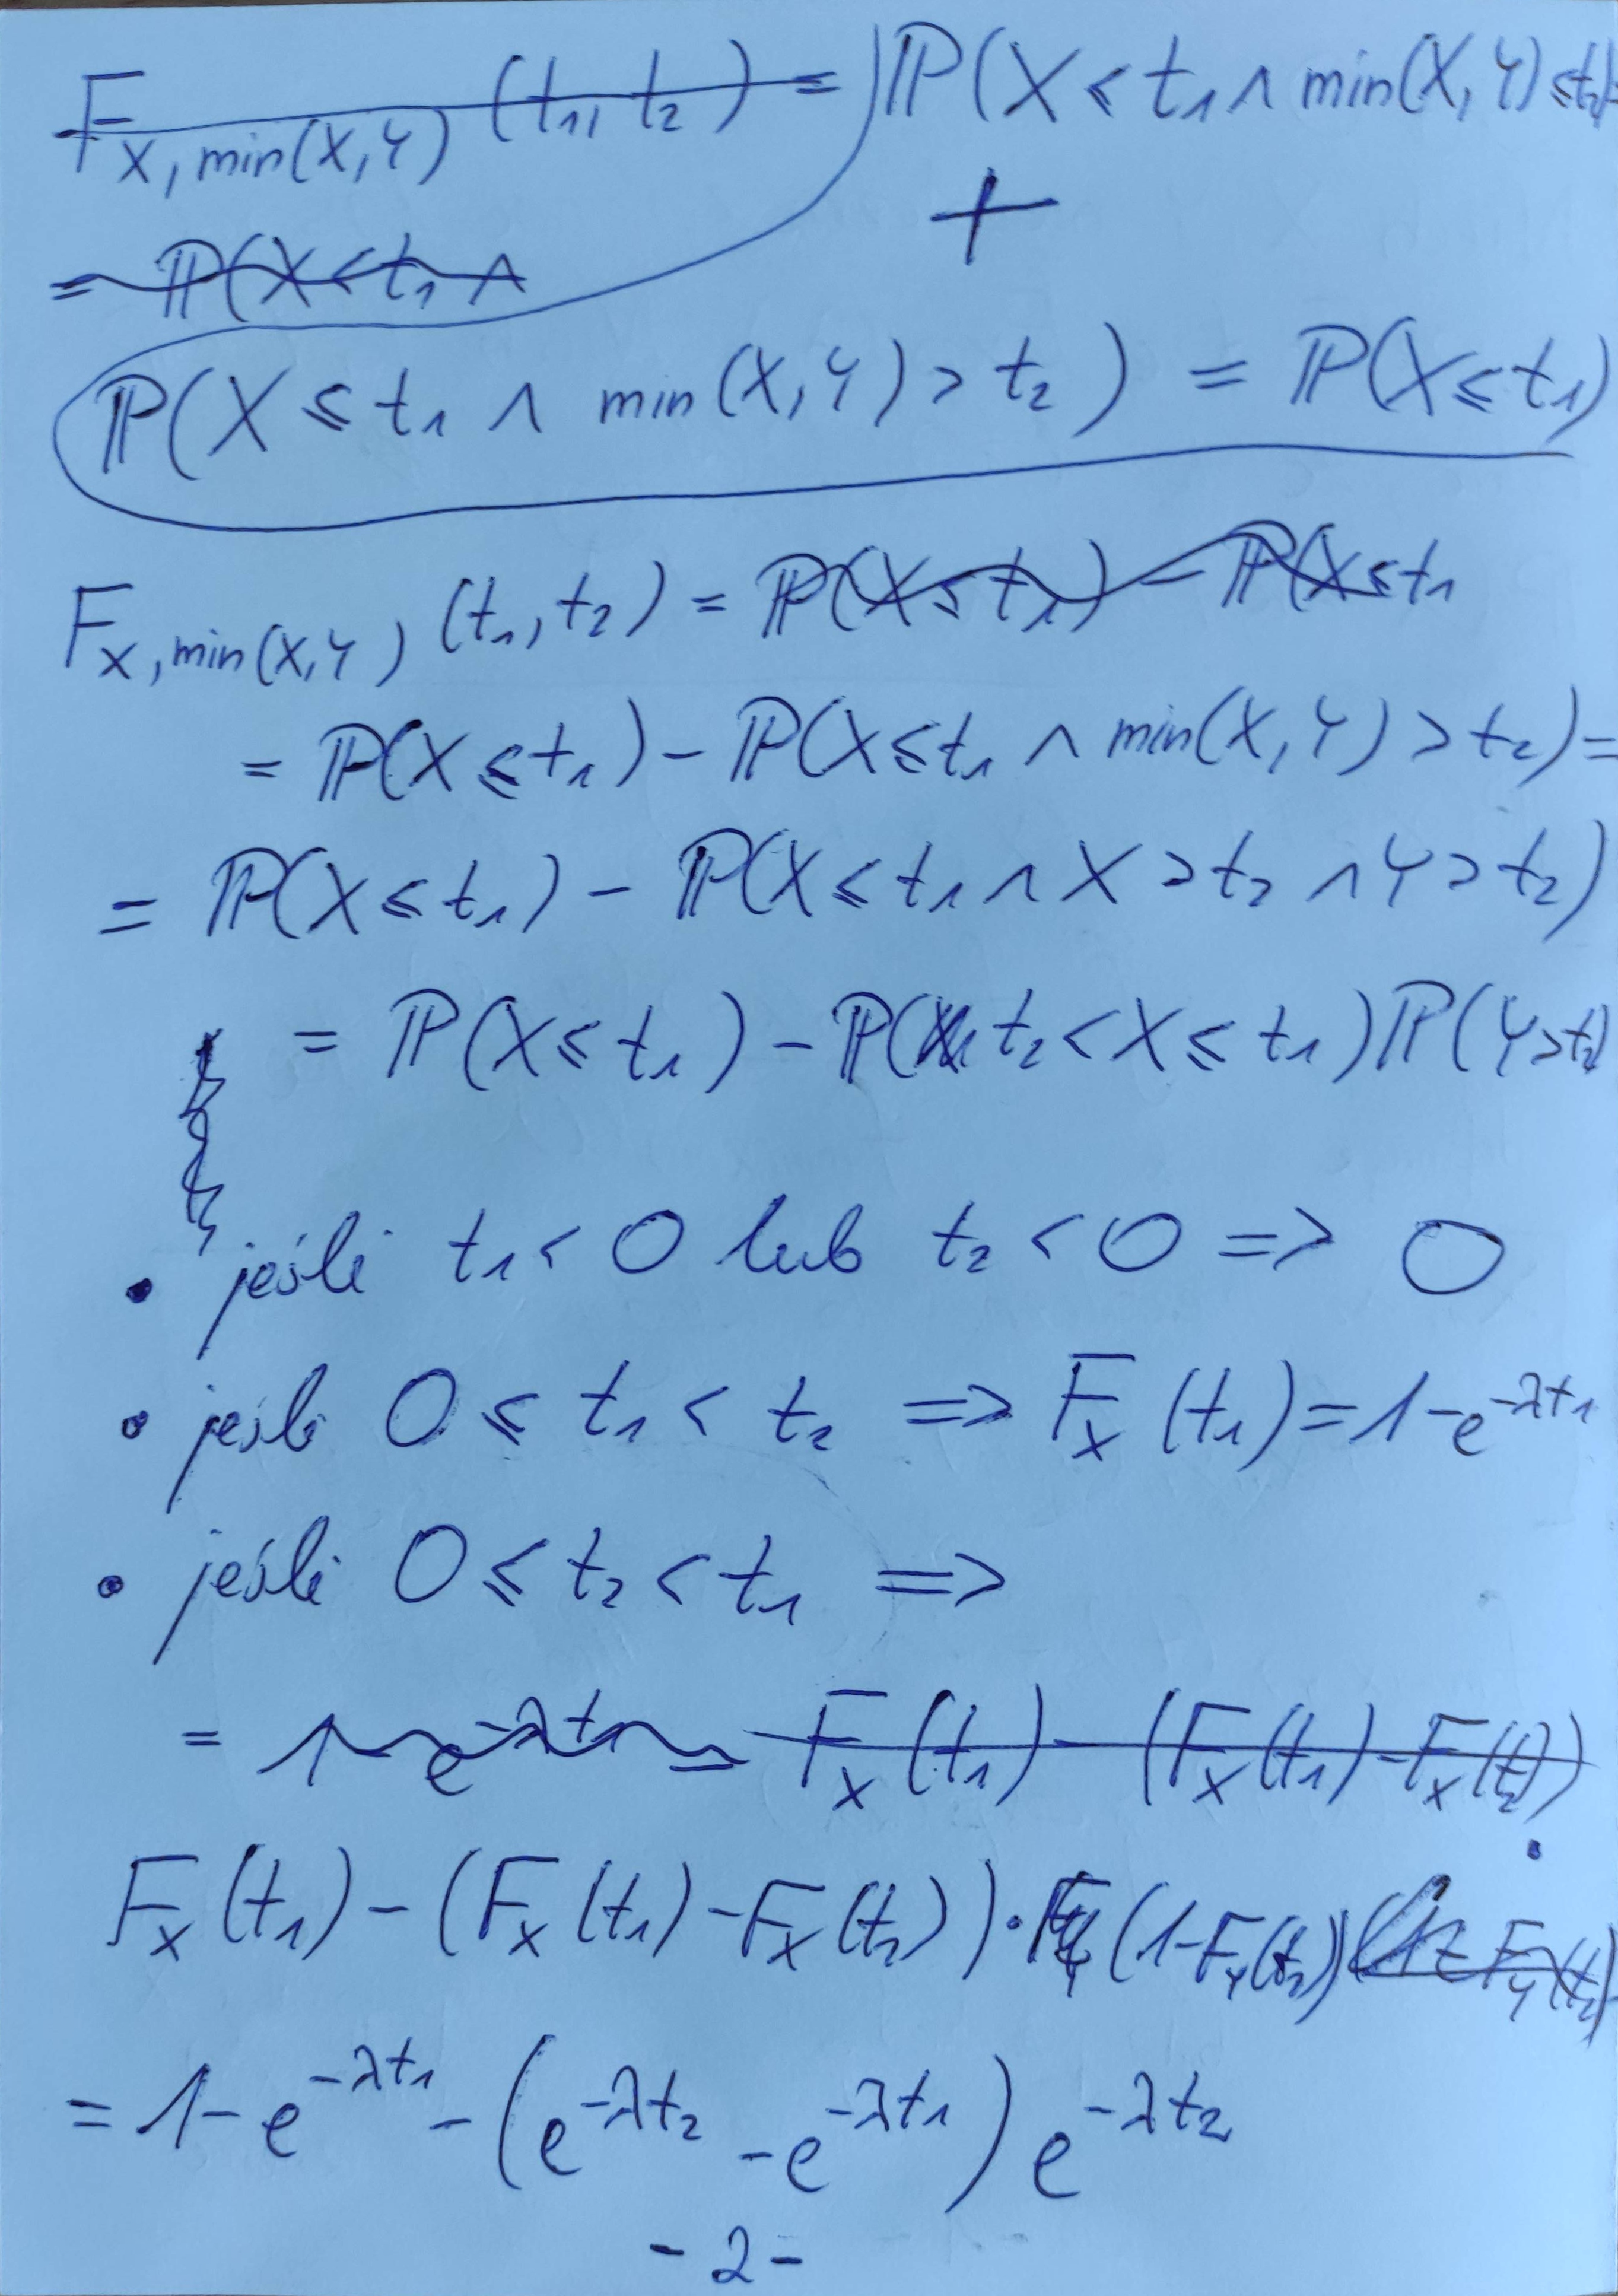 F_{X, min(X,Y)} (t₁, t₂) = ℙ(X ≤ t₁ ∧ min(X,Y) ≤ t₂)
+
= ℙ(X < t₁ ∧
ℙ(X ≤ t₁ ∧ min(X,Y) > t₂) = ℙ(X ≤ t₁)
F_{X, min(X,Y)} (t₁, t₂) = ℙ(X ≤ t₁) - ℙ(X ≤ t₁
= ℙ(X ≤ t₁) - ℙ(X ≤ t₁ ∧ min(X,Y) > t₂) =
= ℙ(X ≤ t₁) - ℙ(X ≤ t₁ ∧ X > t₂ ∧ Y > t₂)
= ℙ(X ≤ t₁) - ℙ( t₂ < X ≤ t₁) ℙ(Y > t₂)
• jeśli t₁ < 0 lub t₂ < 0 => 0
• jeśli 0 ≤ t₁ < t₂ => F_X (t₁) = 1 - e^{-λt₁}
• jeśli 0 ≤ t₂ < t₁ =>
= 1 - e^{-λt₁} - F_X (t₁) - (F_X (t₁) - F_X (t₂))
F_X (t₁) - (F_X (t₁) - F_X (t₂)) · (1 - F_Y (t₂)) (1 - F_Y (t₂))
= 1 - e^{-λt₁} - (e^{-λt₂} - e^{-λt₁}) e^{-λt₂}
- 2 -